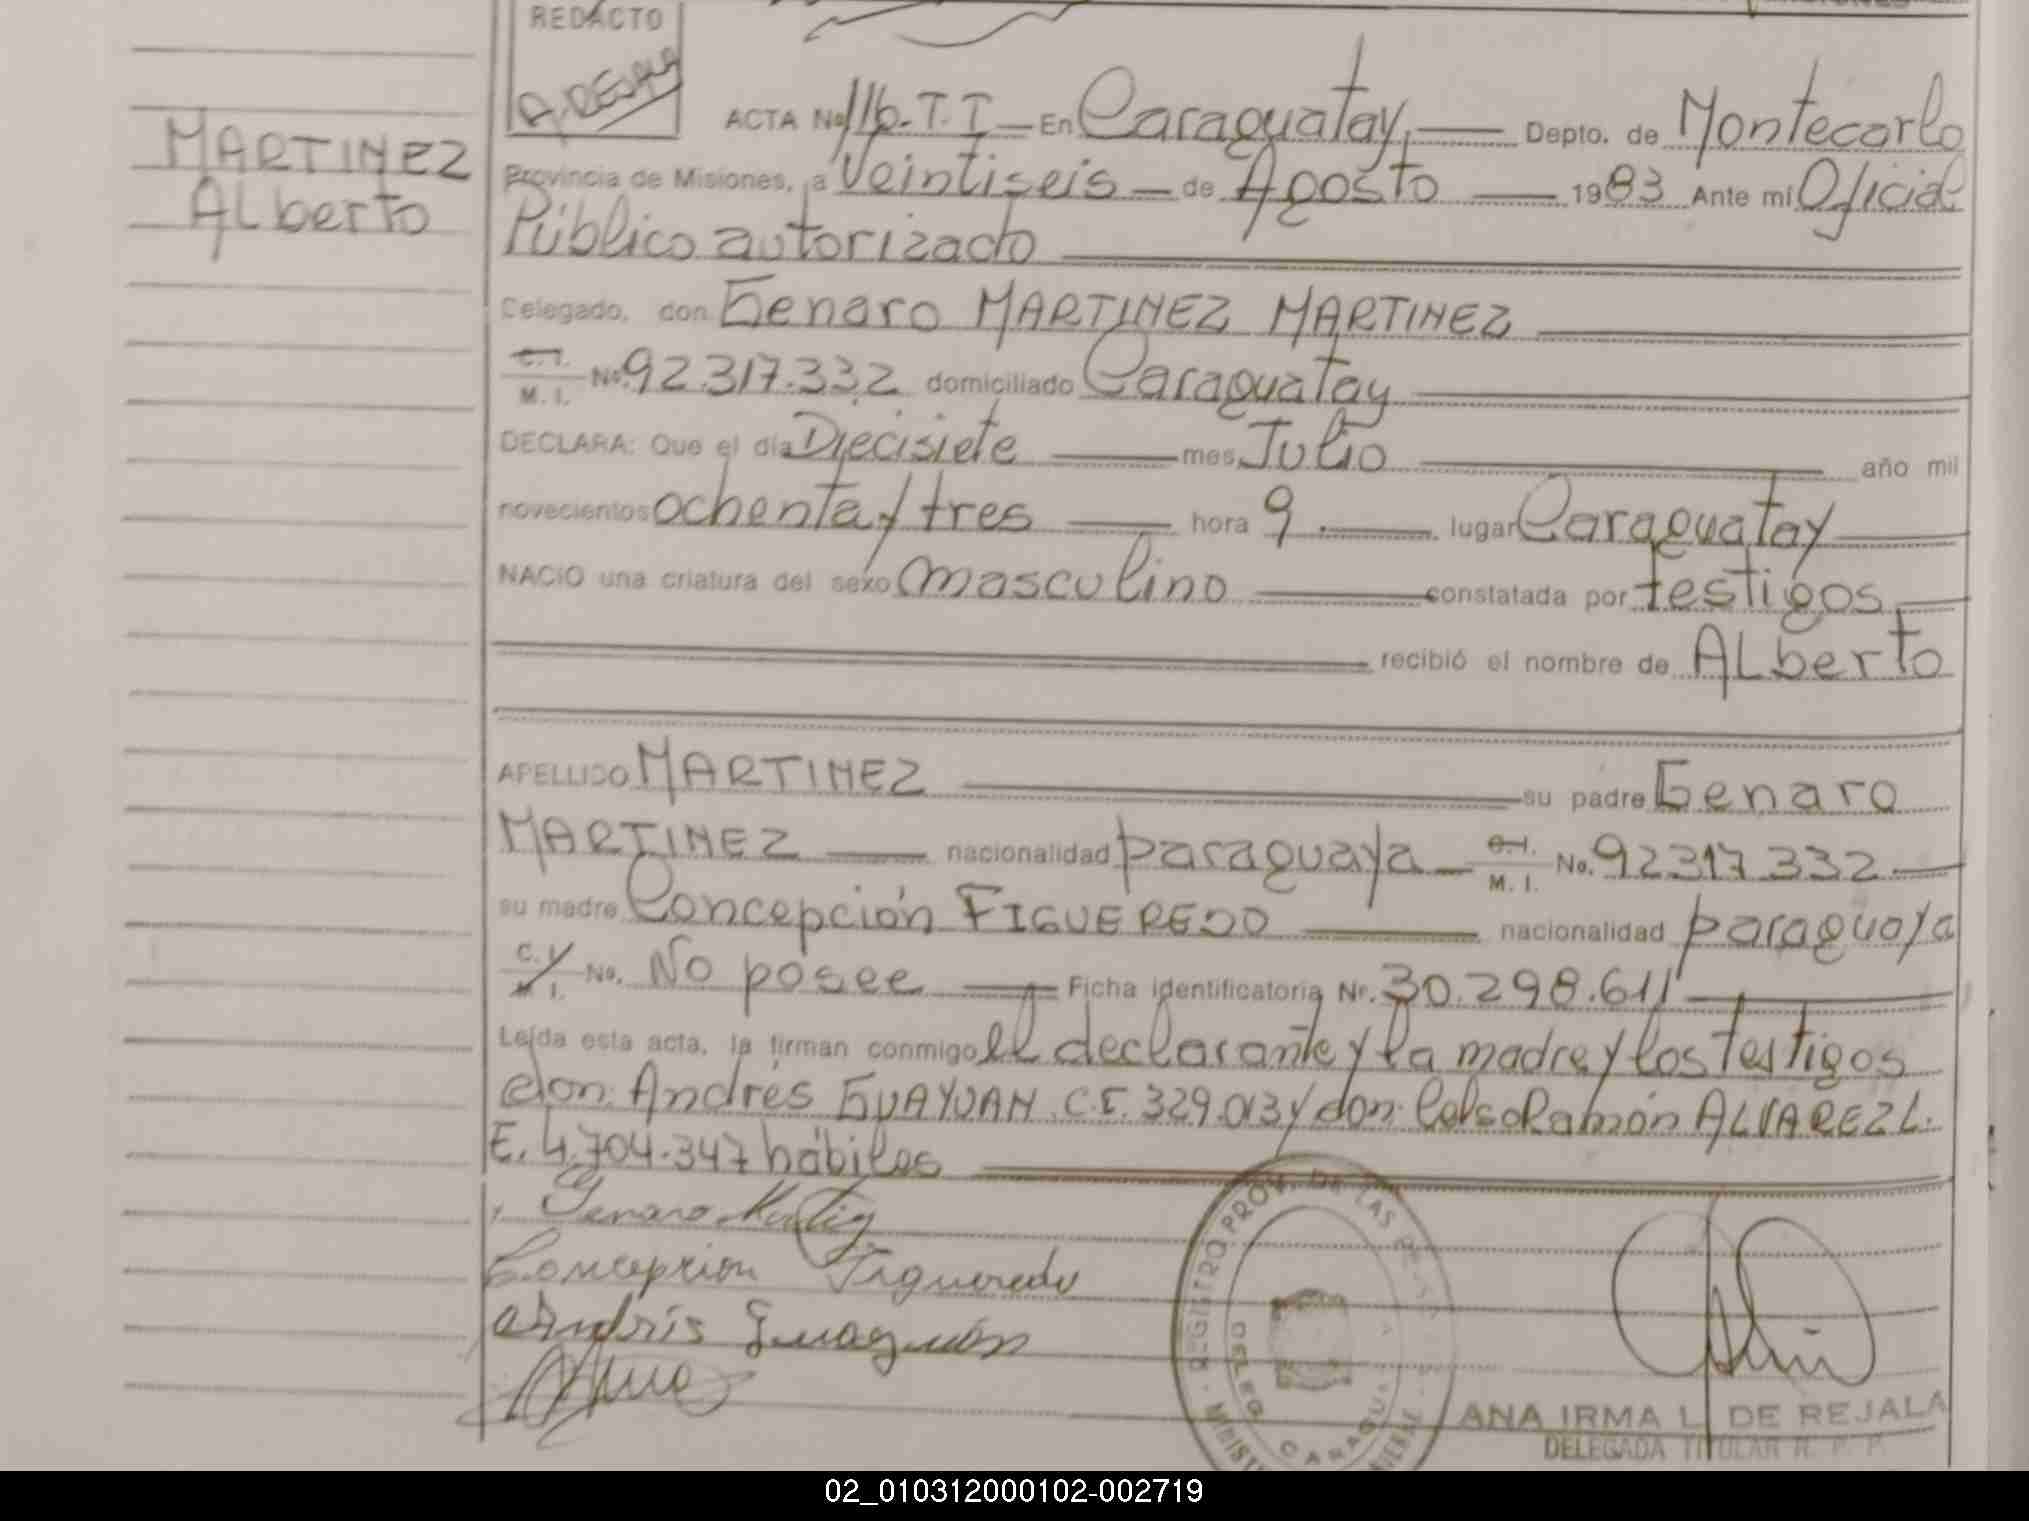 REDACTO
A. REJALA
MARTINEZ
ALberto
ACTA Nº 116.T.I En Caraguatay, Depto. de Montecarlo
Provincia de Misiones, a Veintiseis de Agosto 1983 Ante mí Oficial
Público autorizado
Celegado, don Genaro MARTINEZ MARTINEZ
C.I. M.I. No. 92.317.332 domiciliado Caraguatay
DECLARA: Que el día Diecisiete mes Julio año mil
novecientos ochenta y tres hora 9. lugar Caraguatay
NACIO una criatura del sexo masculino constatada por testigos
recibió el nombre de ALberto
APELLIDO MARTINEZ su padre Genaro
MARTINEZ nacionalidad paraguaya C.I. M.I. No. 92317.332
su madre Concepción FIGUEREDO nacionalidad paraguaya
C.I. M.I. No. No posee Ficha identificatoria Nr. 30.298.611
Leída esta acta, la firman conmigo el declarante y la madre y los Testigos
don: Andrés GUAYUAN C.I. 329.013 y don: Celso Ramón ALVAREZ L.
E. 4.704.347 hábiles
Genaro
Concepcion Figueredo
Andrés Guayuán
REGISTRO PROV. DE LAS
DELEG CARAGUA
ANA IRMA L. DE REJALA
DELEGADA TITULAR R. P. P.
02_010312000102-002719